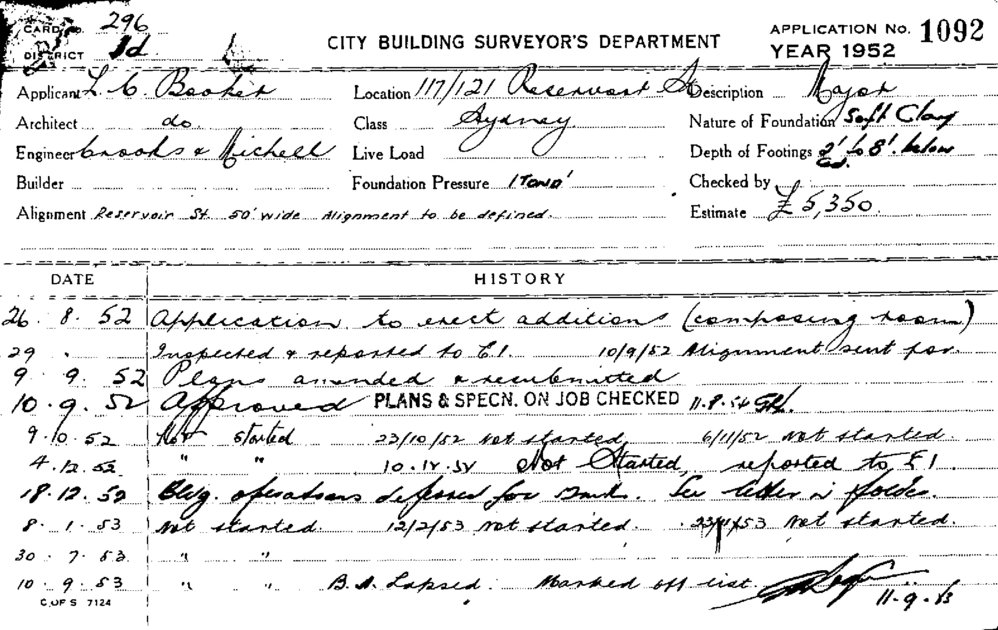 CARD No. 296
DISTRICT 1d
CITY BUILDING SURVEYOR'S DEPARTMENT
APPLICATION No. 1092
YEAR 1952
Applicant L. C. Booker Location 117/121 Reservoir St Description Major
Architect do. Class Sydney Nature of Foundation Soft Clay
Engineer Crooks & Michell Live Load Depth of Footings 2' to 8' below
Builder Foundation Pressure 1 Ton □' Checked by
Alignment Reservoir St. 50' wide Alignment to be defined. Estimate £5,350.
DATE HISTORY
26. 8. 52 Application to erect additions (composing room)
29 . Inspected & reported to E.I. 10/9/52 Alignment sent for.
9 9. 52 Plans amended & resubmitted
10. 9. 52 Approved PLANS & SPECN. ON JOB CHECKED
9. 10. 52 Not started 23/10/52 not started 6/11/52 not started.
4. 12. 52 " " Not Started, reported to E I
18. 12. 52 Bldg. operations deferred for Letter in folder.
8. 1. 53 Not started. 12/2/53 not started. not started.
30 . 7. 53. " "
10. 9. 53 " " B.A. Lapsed. Marked off list
C. OF S 7124 11-9-53